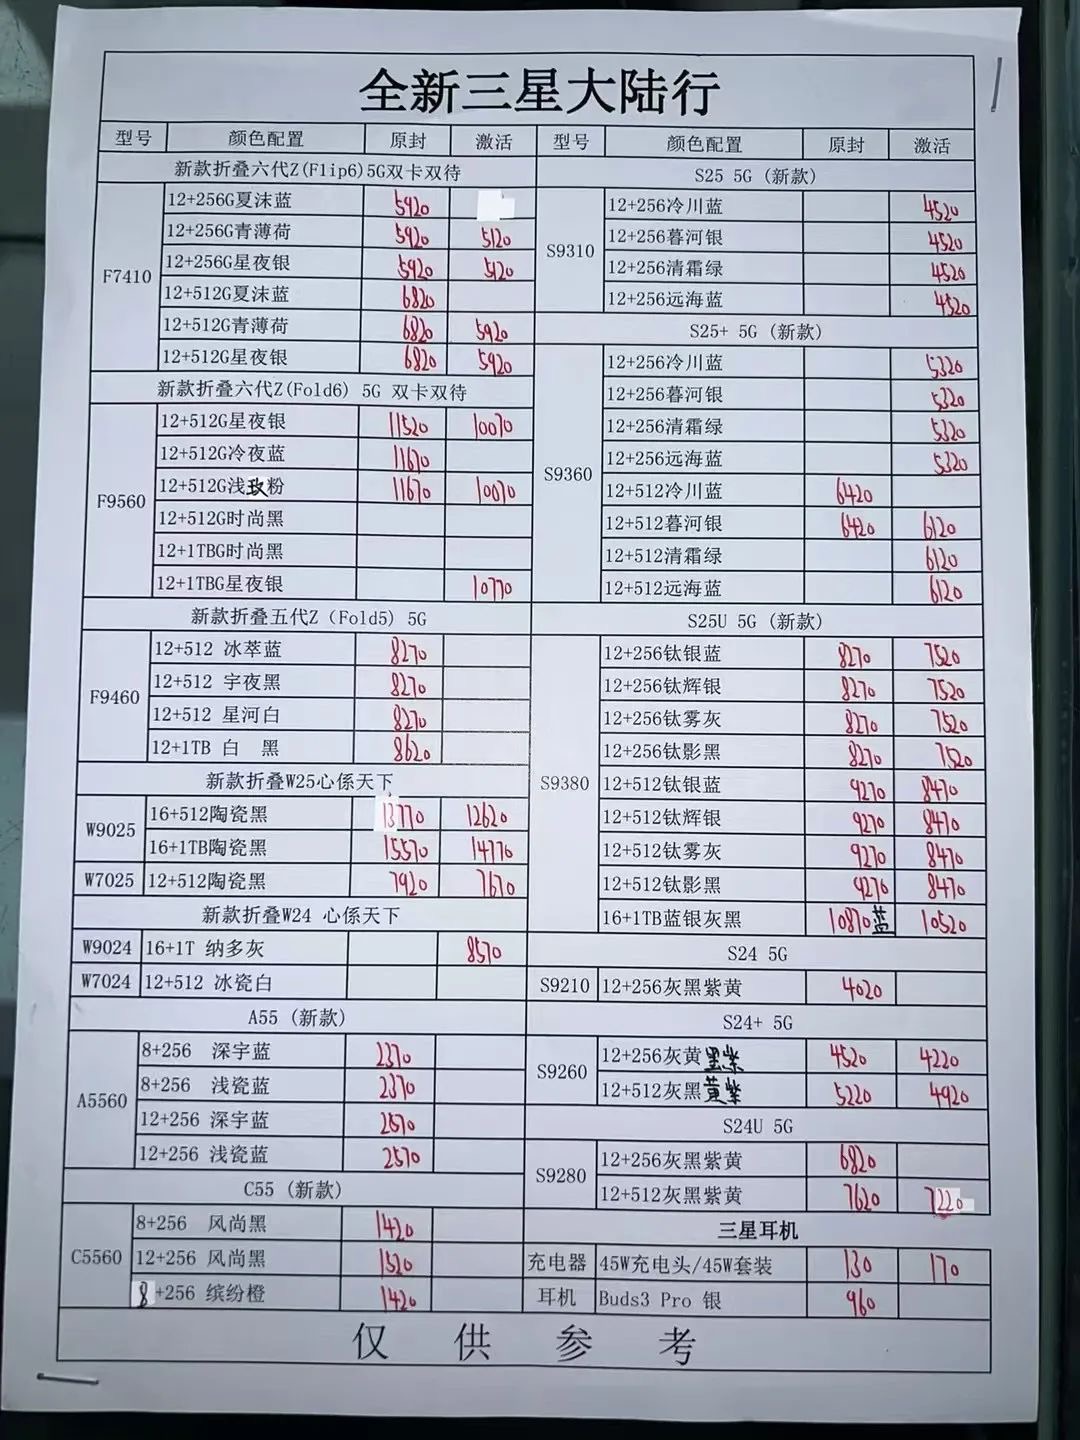 全新三星大陆行
型号 颜色配置 原封 激活
新款折叠六代Z(Flip6)5G双卡双待
F7410
12+256G夏沫蓝 5920
12+256G青薄荷 5920 5120
12+256G星夜银 5920 5120
12+512G夏沫蓝 6820
12+512G青薄荷 6820 5920
12+512G星夜银 6820 5920
新款折叠六代Z(Fold6) 5G 双卡双待
F9560
12+512G星夜银 11520 10070
12+512G冷夜蓝 11670
12+512G浅玫粉 11670 10070
12+512G时尚黑
12+1TBG时尚黑
12+1TBG星夜银 10770
新款折叠五代Z（Fold5) 5G
F9460
12+512 冰萃蓝 8270
12+512 宇夜黑 8270
12+512 星河白 8270
12+1TB 白 黑 8620
新款折叠W25心係天下
W9025
16+512陶瓷黑 13770 12620
16+1TB陶瓷黑 15570 14770
W7025 12+512陶瓷黑 7920 7670
新款折叠W24 心係天下
W9024 16+1T 纳多灰 8570
W7024 12+512 冰瓷白
A55 (新款)
A5560
8+256 深宇蓝 2370
8+256 浅瓷蓝 2370
12+256 深宇蓝 2570
12+256 浅瓷蓝 2570
C55 (新款)
C5560
8+256 风尚黑 1420
12+256 风尚黑 1520
8+256 缤纷橙 1420
型号 颜色配置 原封 激活
S25 5G (新款)
S9310
12+256冷川蓝 4520
12+256暮河银 4520
12+256清霜绿 4520
12+256远海蓝 4520
S25+ 5G (新款)
S9360
12+256冷川蓝 5320
12+256暮河银 5320
12+256清霜绿 5320
12+256远海蓝 5320
12+512冷川蓝 6420
12+512暮河银 6420 6120
12+512清霜绿 6120
12+512远海蓝 6120
S25U 5G (新款)
S9380
12+256钛银蓝 8270 7520
12+256钛辉银 8270 7520
12+256钛雾灰 8270 7520
12+256钛影黑 8270 7520
12+512钛银蓝 9270 8470
12+512钛辉银 9270 8470
12+512钛雾灰 9270 8470
12+512钛影黑 9270 8470
16+1TB蓝银灰黑 10870蓝 10520
S24 5G
S9210 12+256灰黑紫黄 4020
S24+ 5G
S9260
12+256灰黄黑紫 4520 4220
12+512灰黑黄紫 5220 4920
S24U 5G
S9280
12+256灰黑紫黄 6820
12+512灰黑紫黄 7620 7220
三星耳机
充电器 45W充电头/45W套装 130 170
耳机 Buds3 Pro 银 960
仅供参考